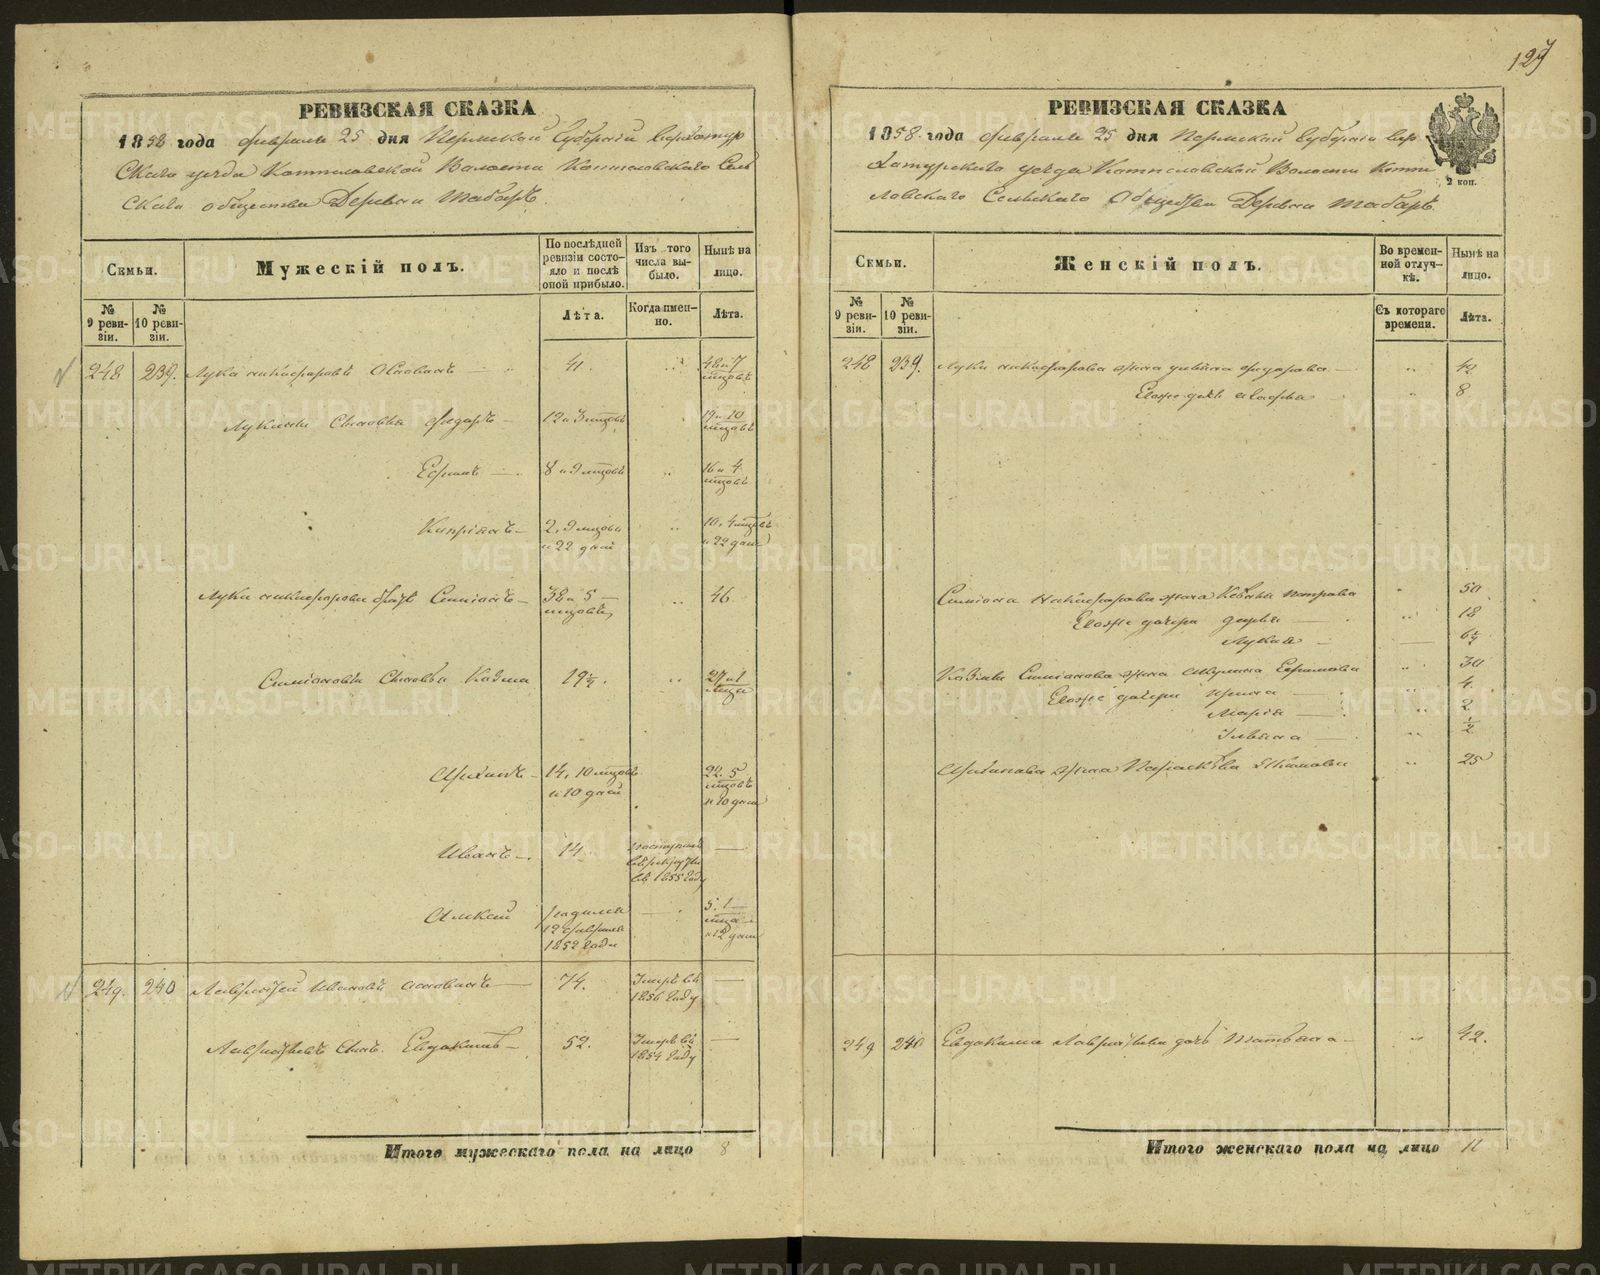 127
РЕВИЗСКАЯ СКАЗКА
1858 года февраля 25 дня Пермской Губернии Верхотур
скаго уезда Коптиловской Волости Коптиловскаго Сель
скаго общества Деревни Табаръ.
Семьи.
Мужескій полъ.
По послѣдней ревизіи состояло и послѣ оной прибыло.
Изъ того числа выбыло.
Нынѣ на лицо.
№ 9 ревизіи.
№ 10 ревизіи.
Лѣта.
Когда именно.
Лѣта.
248 239. Лука Никифоровъ 41 48 и 7
Лукины Сыновья Федоръ 12 и 3 19 и 10
Ефимъ 8 и 9 16 и 4
Кипріянъ 2, 9 и 22 дней 10, 4 и 22 дней
Луки Никифорова братъ Симіонъ 38 и 5 46
Симіоновы Сыновья Козма 19½. 27 и 1
14, 10 и 10 дней 22. 5 и 10 дней
Иванъ 14 поступилъ въ рекруты въ 1855 году
Алексей родился 12 февраля 1852 года 5. 1 и 12 дней
249. 240 Лаврентей Ивановъ 74. Умре въ 1856 году
Лаврентьевъ Сынъ Евдокимъ 52. Умре въ 1854 году
Итого мужескаго пола на лицо 8
РЕВИЗСКАЯ СКАЗКА
1858 года февраля 25 дня Пермской Губернии Вер-
хотурскаго уезда Коптиловской Волости Копти
ловскаго Сельскаго Общества Деревни Табаръ.
2 коп.
Семьи.
Женскій полъ.
Во временной отлучкѣ.
Нынѣ на лицо.
№ 9 ревизіи.
№ 10 ревизіи.
Съ котораго времени.
Лѣта.
248 239. Луки Никифорова жена Федорова 42
Ево же дочь 8
Симіона Никифорова жена Петрова 50
Ево же дочери Дарья 18
Лукия 6½
Козмы Симіонова жена Ефимова 30
Ево же дочери Ирина 4.
Марія 2
½
жена Парасковья 25
249 240 Евдокима Лаврентьева дочь Татьяна 12.
Итого женскаго пола на лицо 11
METRIKI.GASO-URAL.RU